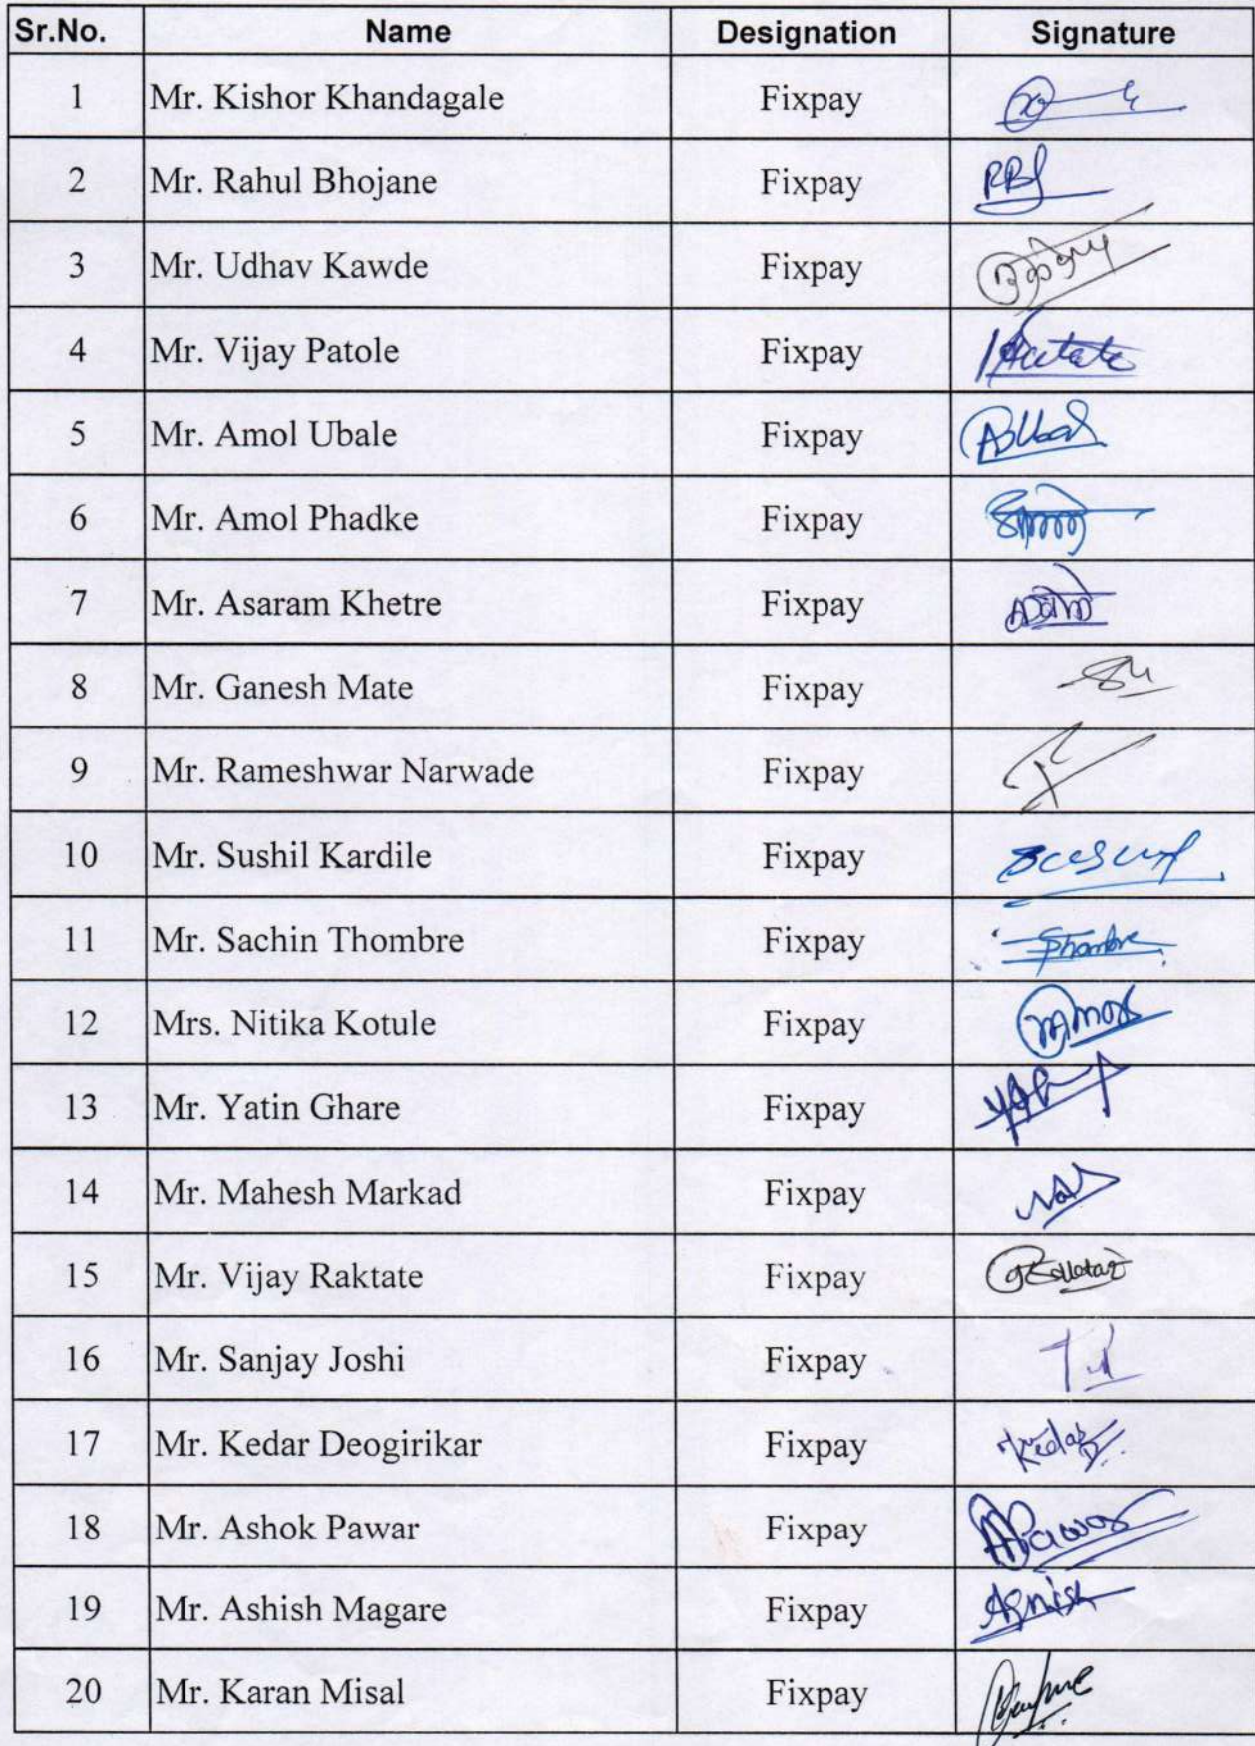 Sr.No. Name Designation Signature
1 Mr. Kishor Khandagale Fixpay
2 Mr. Rahul Bhojane Fixpay RBJ
3 Mr. Udhav Kawde Fixpay
4 Mr. Vijay Patole Fixpay
5 Mr. Amol Ubale Fixpay
6 Mr. Amol Phadke Fixpay
7 Mr. Asaram Khetre Fixpay
8 Mr. Ganesh Mate Fixpay
9 Mr. Rameshwar Narwade Fixpay
10 Mr. Sushil Kardile Fixpay
11 Mr. Sachin Thombre Fixpay Thombre
12 Mrs. Nitika Kotule Fixpay
13 Mr. Yatin Ghare Fixpay
14 Mr. Mahesh Markad Fixpay
15 Mr. Vijay Raktate Fixpay
16 Mr. Sanjay Joshi Fixpay
17 Mr. Kedar Deogirikar Fixpay Kedar
18 Mr. Ashok Pawar Fixpay APawar
19 Mr. Ashish Magare Fixpay Ashish
20 Mr. Karan Misal Fixpay